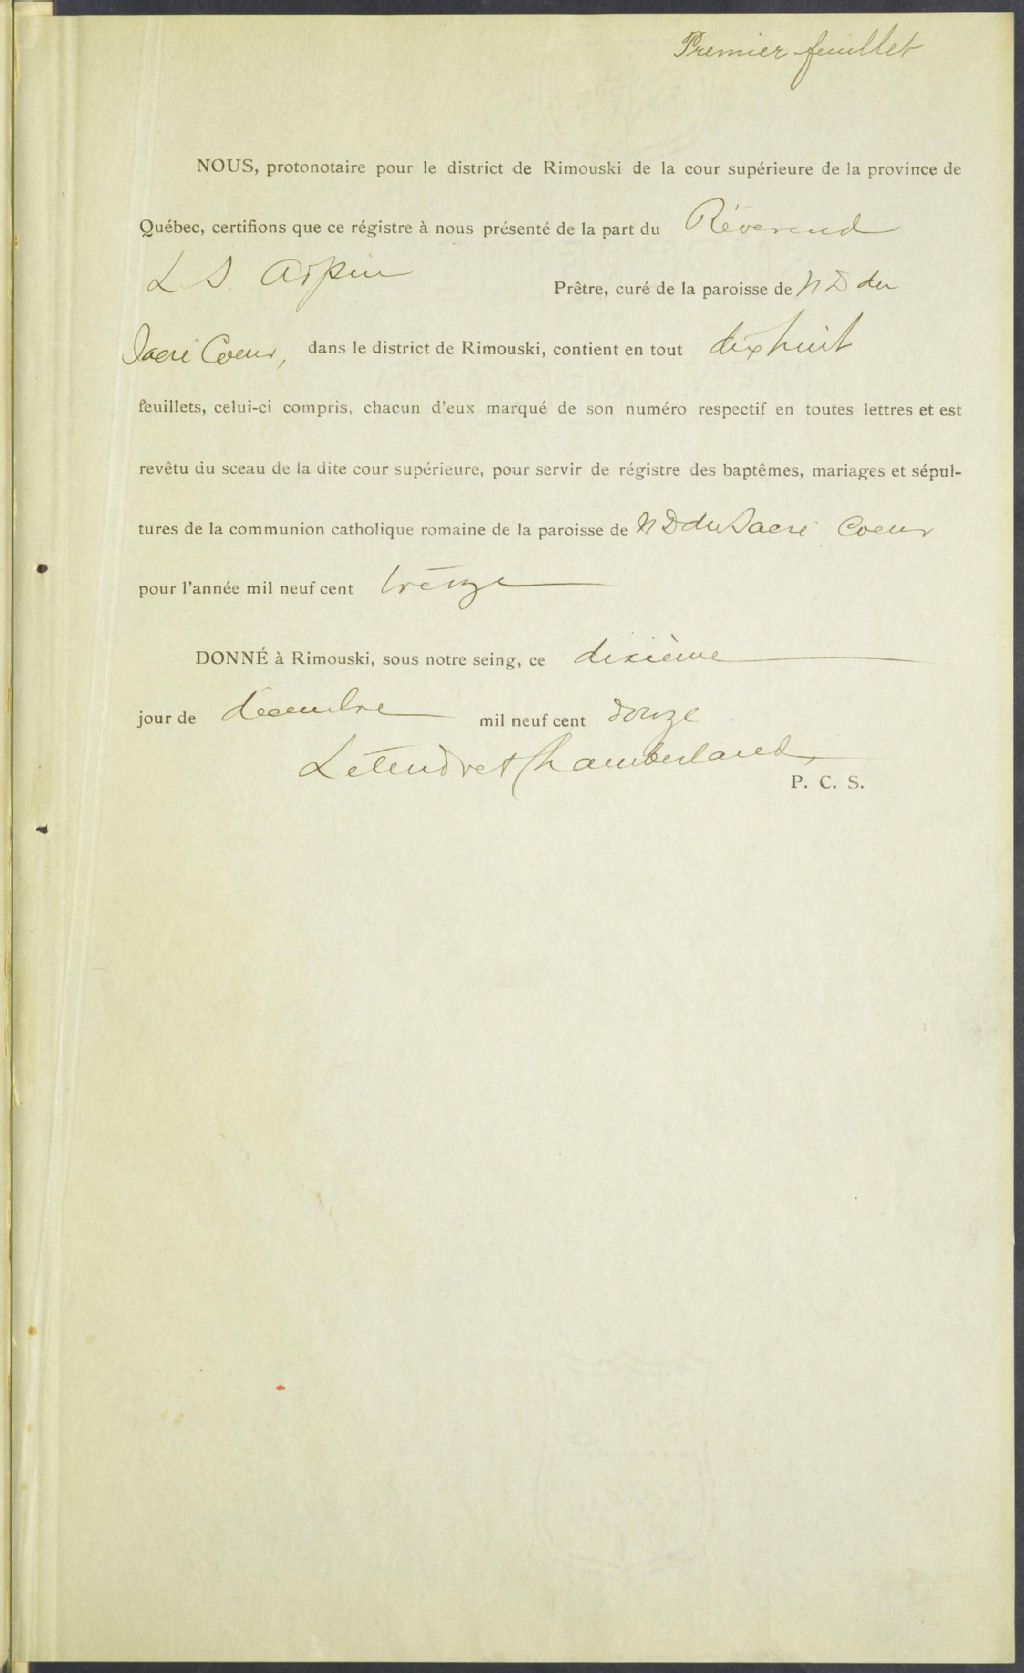 Premier feuillet
NOUS, protonotaire pour le district de Rimouski de la cour supérieure de la province de
Québec, certifions que ce régistre à nous présenté de la part du Révérend
L S. Arpin Prêtre, curé de la paroisse de N D du
Sacré Coeur, dans le district de Rimouski, contient en tout dix huit
feuillets, celui-ci compris, chacun d'eux marqué de son numéro respectif en toutes lettres et est
revêtu du sceau de la dite cour supérieure, pour servir de régistre des baptêmes, mariages et sépul-
tures de la communion catholique romaine de la paroisse de N D du Sacré Coeur
pour l'année mil neuf cent treize
DONNÉ à Rimouski, sous notre seing, ce dixième
jour de décembre mil neuf cent douze
Letendre & Chamberland,
P. C. S.